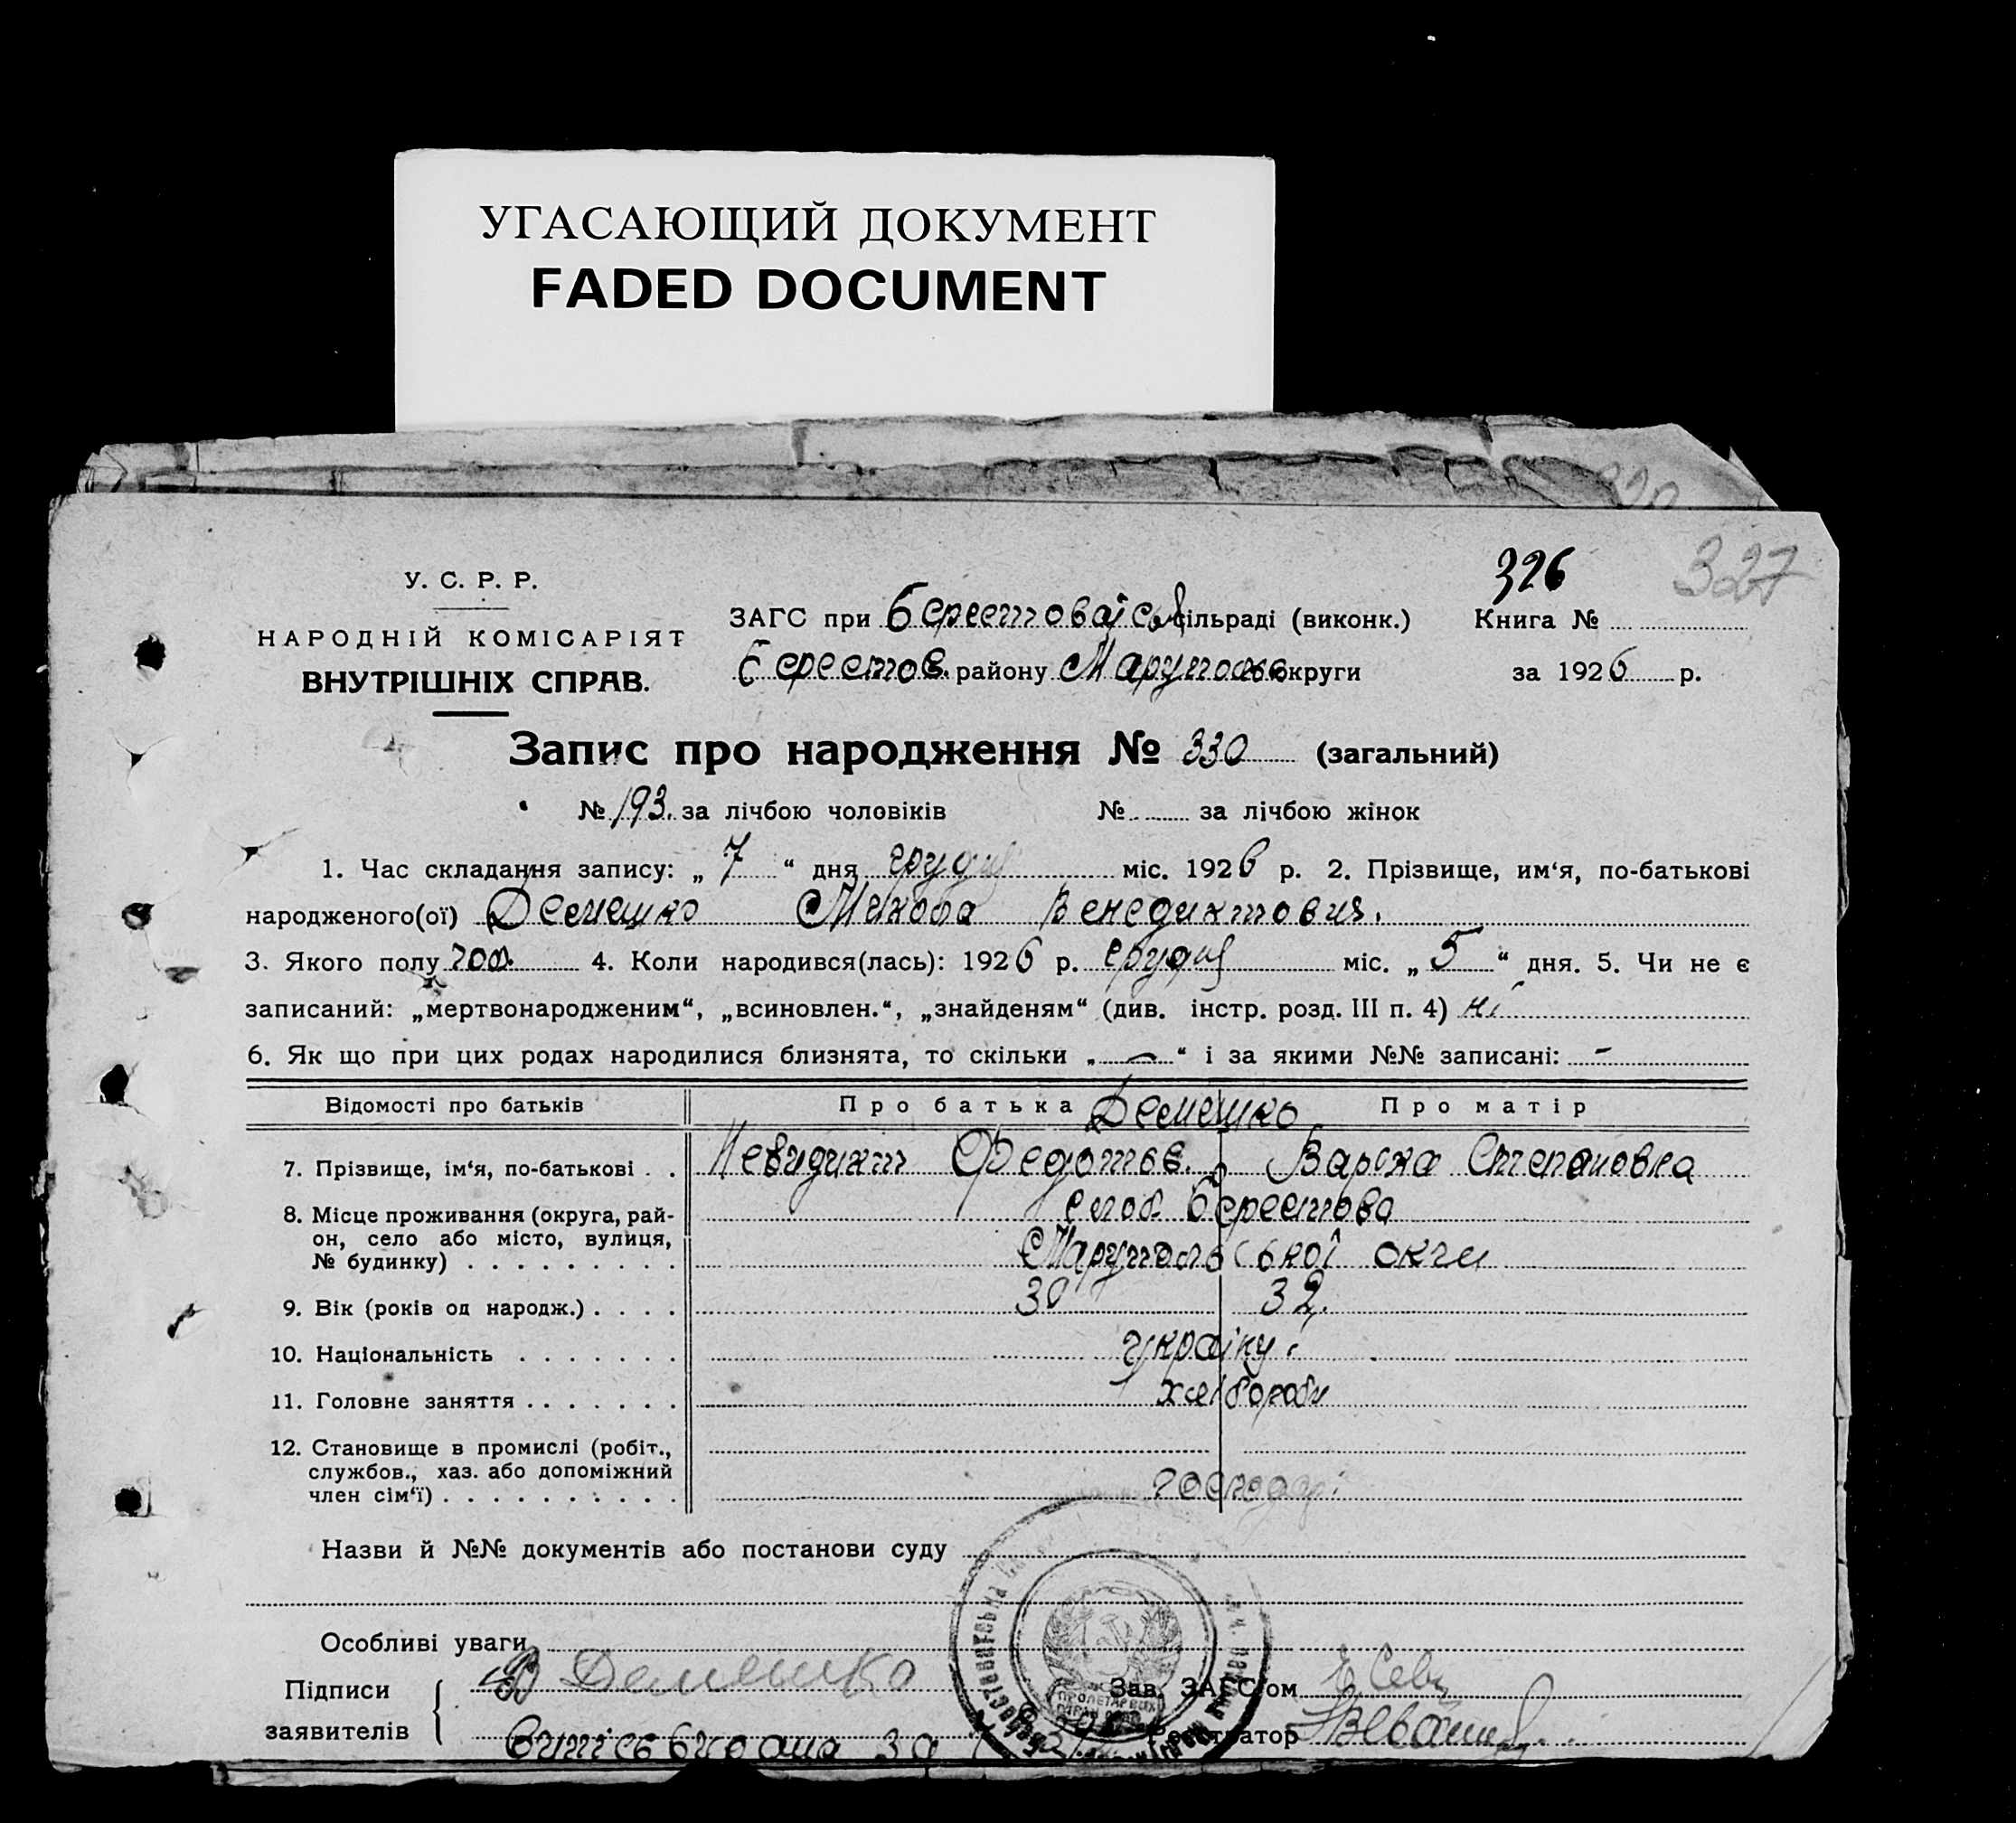 УГАСАЮЩИЙ ДОКУМЕНТ
FADED DOCUMENT
320
326
327
У. С. Р. Р.
НАРОДНІЙ КОМІСАРІЯТ
ВНУТРІШНІХ СПРАВ.
ЗАГС при Берестовоїсь сільраді (виконк.) Книга №
Берестов. району Маруполь округи за 1926 р.
Запис про народження № 330 (загальний)
№ 193. за лічбою чоловіків № за лічбою жінок
1. Час складання запису: „ 7 “ дня грудня міс. 1926 р. 2. Прізвище, им‘я, по-батькові
народженого(ої) Демешко Микола Венедиктович.
3. Якого полу чол. 4. Коли народився(лась): 1926 р. грудня міс. „ 5 “ дня. 5. Чи не є
записаний: „мертвонародженим“, „всиновлен.“, „знайденям“ (див. інстр. розд. III п. 4) ні
6. Як що при цих родах народилися близнята, то скільки „ — “ і за якими №№ записані: -
Відомості про батьків Про батька Про матір
Демешко
7. Прізвище, ім‘я, по-батькові . . Невидикт Федотов. Варька Степановна
8. Місце проживання (округа, рай-
он, село або місто, вулиця,
№ будинку) . . . . . . . . .
слоб. Берестова
Марупольської окги
9. Вік (років од народж.) . . . . 30 32.
10. Національність . . . . . . . україн.
11. Головне заняття . . . . . . . хлібороби
12. Становище в промислі (робіт.,
службов., хаз. або допоміжний
член сім‘ї) . . . . . . . . . . господарі
Назви й №№ документів або постанови суду
Особливі уваги
Підписи
заявителів
В Демешко
Зав. ЗАГС‘ом
Реєстратор
випісь видана за
ПРОЛЕТАР ВСІХ